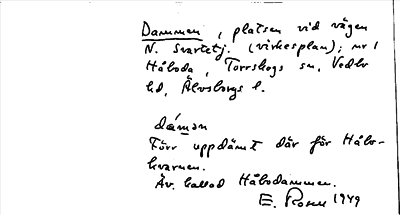 Dammen, platsen vid vägen
N. Svartetj. (virkesplan); nr 1
Håboda, Torrskogs sn, Vedbo
hd, Älvsborgs l.
dámən
Förr uppdämt där för Håbo-
kvarnen.
Äv. kallad Håbodammen.
E. Rosen 1949